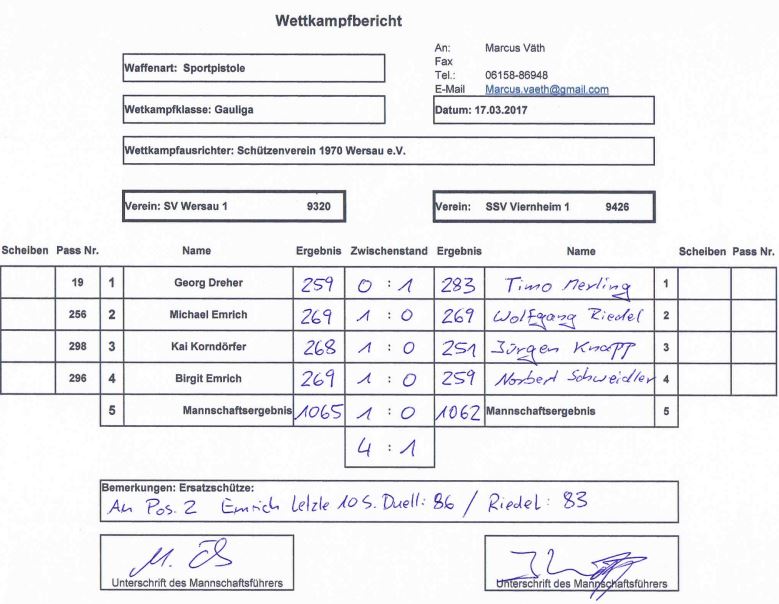 Wettkampfbericht
An: Marcus Väth
Fax
Waffenart: Sportpistole
Tel.: 06158-86948
E-Mail Marcus.vaeth@gmail.com
Wetkampfklasse: Gauliga
Datum: 17.03.2017
Wettkampfausrichter: Schützenverein 1970 Wersau e.V.
Verein: SV Wersau 1 9320
Verein: SSV Viernheim 1 9426
Scheiben Pass Nr. Name Ergebnis Zwischenstand Ergebnis Name Scheiben Pass Nr.
19 1 Georg Dreher 259 0 : 1 283 Timo Merling 1
256 2 Michael Emrich 269 1 : 0 269 Wolfgang Riedel 2
298 3 Kai Korndörfer 268 1 : 0 251 Jürgen Knapp 3
296 4 Birgit Emrich 269 1 : 0 259 Norbert Schweidler 4
5 Mannschaftsergebnis 1065 1 : 0 1062 Mannschaftsergebnis 5
4 : 1
Bemerkungen: Ersatzschütze:
An Pos. 2 Emrich Letzte 10 S. Duell: 86 / Riedel: 83
Unterschrift des Mannschaftsführers
Unterschrift des Mannschaftsführers